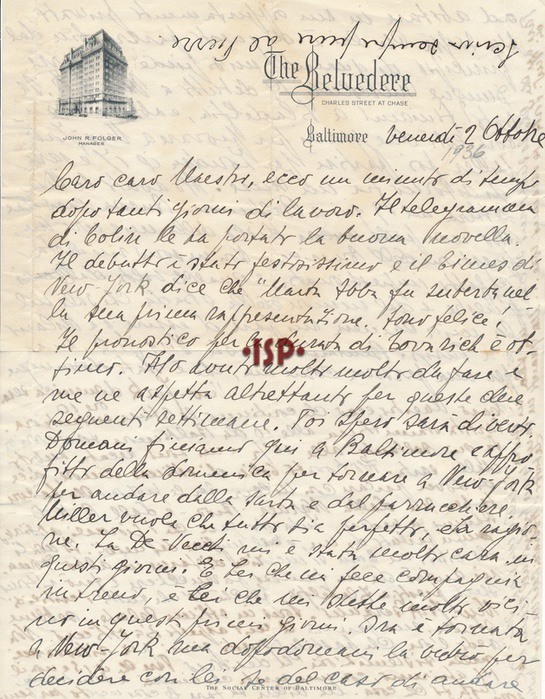 scrivo sempre pure al Pierre.
The Belvedere
CHARLES STREET AT CHASE
JOHN R. FOLGER
MANAGER
Baltimore venerdì 2 Ottobre
1936
Caro caro Maestro, ecco un minuto di tempo
dopo tanti giorni di lavoro. Il telegramma
di Colin le ha portato la buona novella.
Il debutto è stato festosissimo e il Times di
New York dice che "Marta Abba fu superba nel
la sua prima rappresentazione. Sono felice!
Il pronostico per la serata di è ot-
timo. Ho avuto molto molto da fare e
me ne aspetta altrettanto per queste due
seguenti settimane. Poi spero sarà diverso
Domani finiamo qui a Baltimore e appro
fitto della domenica per tornare a New-York
per andare dalla sarta e dal parrucchiere.
Miller vuole che tutto sia perfetto, e ha ragio-
ne. La De Vecchi mi è stata molto cara in
questi giorni. È Lei che mi fece compagnia
in treno, è Lei che mi stette molto vici-
no in questi primi giorni. Ora è tornata
a New-York ma dopodomani la vedrò per
decidere con lei se del caso di andare
THE SOCIAL CENTER OF BALTIMORE
•ISP•